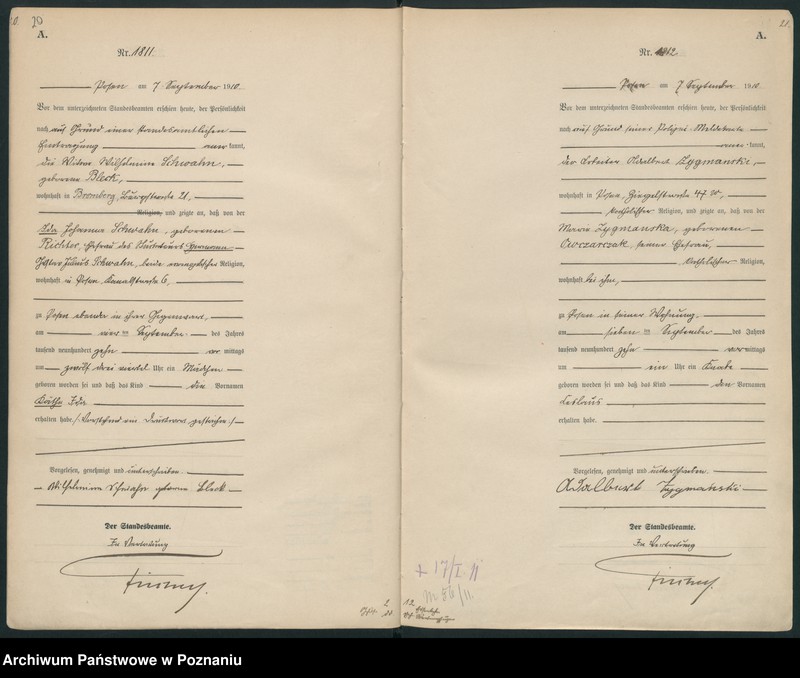 20
A.
Nr. 1811.
Posen am 7 September 1910.
Vor dem unterzeichneten Standesbeamten erschien heute, der Persönlichkeit
nach auf Grund einer standesamtlichen
Eintragung kannt,
die Witwe Wilhelmine Schwahn,
geborene Bleck,
wohnhaft in Bromberg, 21,
Religion, und zeigte an, daß von der
Ida Johanna Schwahn, geborenen
Richter, Ehefrau des Hermann
Julius Schwahn, beide evangelischer Religion,
wohnhaft in Posen, Kanalstraße 6,
zu Posen ebenda in ihrer Gegenwart,
am vier ten September des Jahres
tausend neunhundert zehn vor mittags
um zwölf drei viertel Uhr ein Mädchen
geboren worden sei und daß das Kind die Vornamen
Käthe Ida
erhalten habe. /: Vorstehend ein Druckwort gestrichen :/
Vorgelesen, genehmigt und unterschrieben.
Wilhelmine Schwahn geborene Bleck
Der Standesbeamte.
In Vertretung
21.
A.
Nr. 1812.
Posen am 7 September 1910.
Vor dem unterzeichneten Standesbeamten erschien heute, der Persönlichkeit
nach auf Grund seiner Polizei-Meldekarte
kannt,
der Arbeiter Adalbert Zygmanski,
wohnhaft in Posen, 47
katholischer Religion, und zeigte an, daß von der
Maria Zygmanska, geborenen
Owczarczak, seiner Ehefrau,
katholischer Religion,
wohnhaft bei ihm,
zu Posen in seiner Wohnung
am sieben ten September des Jahres
tausend neunhundert zehn vormittags
um ein Uhr ein Knabe
geboren worden sei und daß das Kind den Vornamen
Ceslaus
erhalten habe.
Vorgelesen, genehmigt und unterschrieben.
Adalbert Zygmanski
Der Standesbeamte.
In Vertretung
+ 17/I. 11
Archiwum Państwowe w Poznaniu